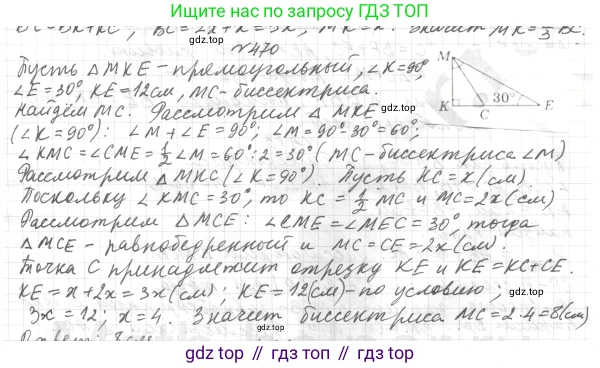 Ищите нас по запросу ГДЗ ТОП
BC=BK+KC, BC=2x+x=3x, MK=x. Значит MK=1/3 BC.
№470
Пусть △MKE-прямоугольный, ∠K=90°,
∠E=30°, KE=12см, MC-биссектриса.
Найдём MC. Рассмотрим △MKE
(∠K=90°): ∠M+∠E=90°; ∠M=90°-30°=60°;
∠KMC=∠CME=1/2∠M=60°:2=30° (MC-биссектриса ∠M)
Рассмотрим △MKC(∠K=90°). Пусть KC=x(см)
Поскольку ∠KMC=30°, то KC=1/2 MC и MC=2x(см)
Рассмотрим △MCE: ∠CME=∠MEC=30°, тогда
△MCE-равнобедренный и MC=CE=2x(см).
Точка C принадлежит отрезку KE и KE=KC+CE.
KE=x+2x=3x(см); KE=12(см)-по условию;
3x=12; x=4. Значит биссектриса MC=2·4=8(см)
M
K
C
30°
E
gdz.top // гдз.top // gdz.top